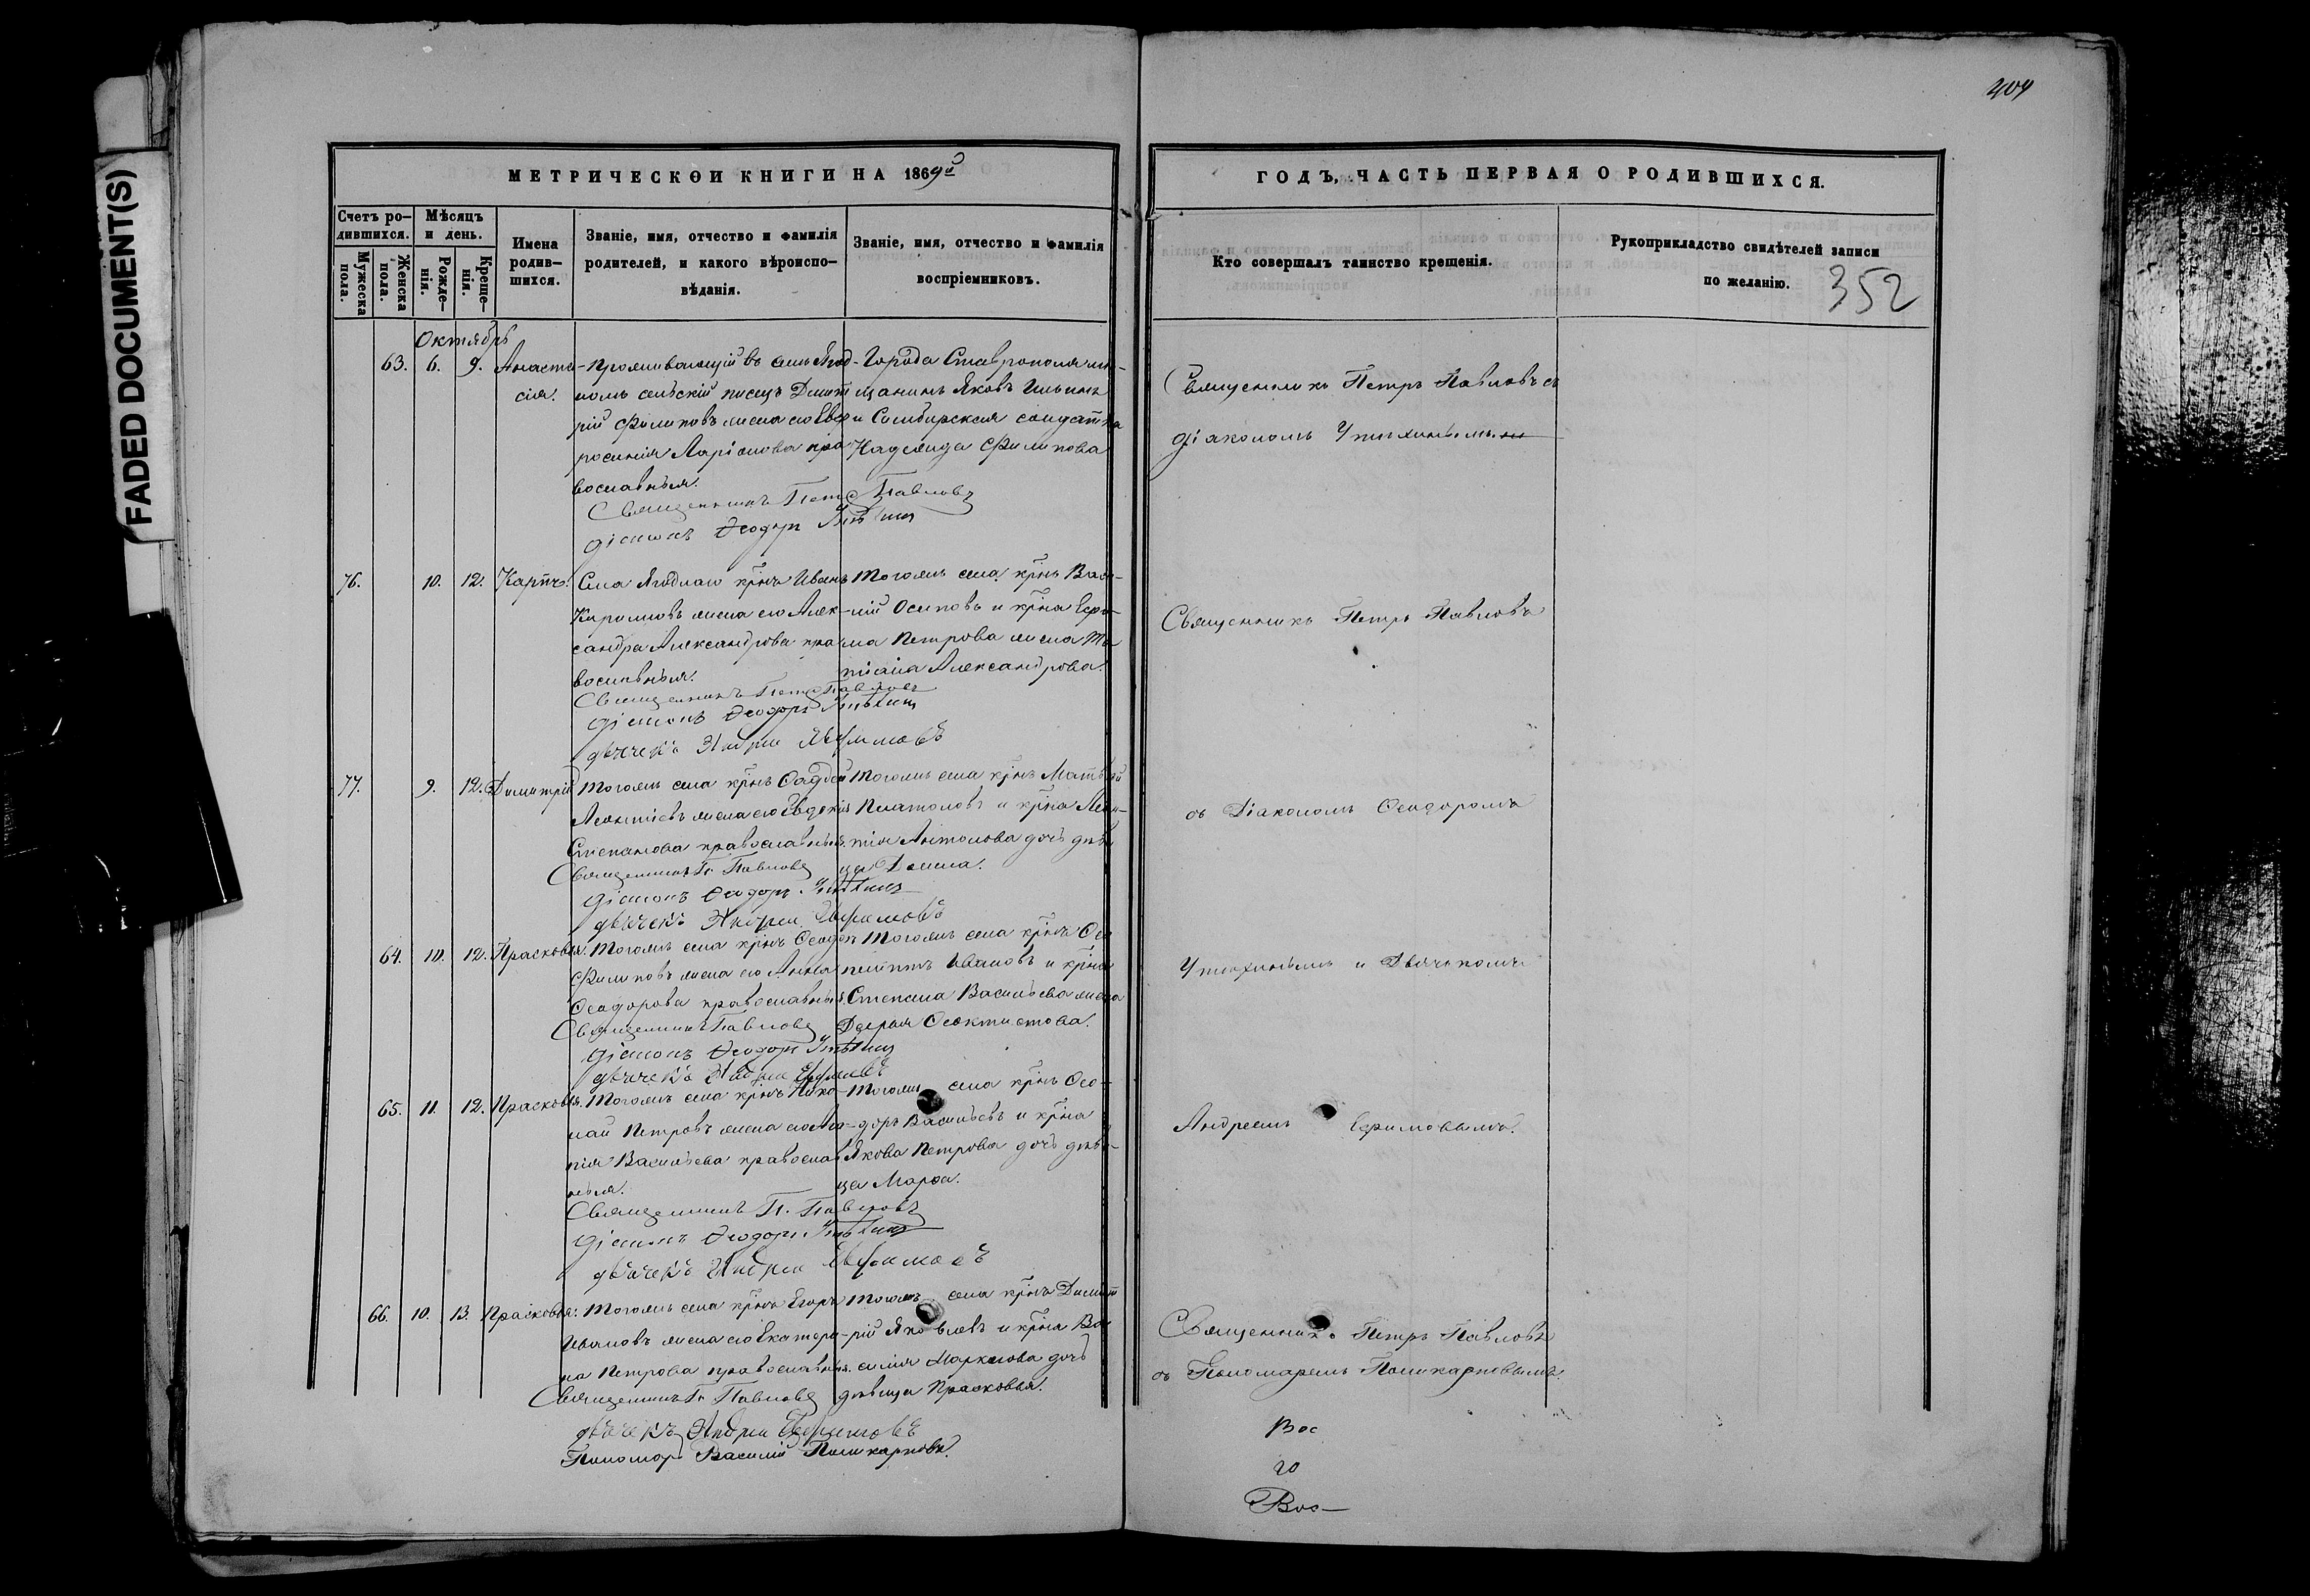 FADED DOCUMENT(S)
404
МЕТРИЧЕСКОИ КНИГИ НА 1869й
ГОДЪ, ЧАСТЬ ПЕРВАЯ О РОДИВШИХСЯ.
Счетъ ро-
дившихся.
Мужеска
пола.
Женска
пола.
Мѣсяцъ
и день.
Рожде-
нія.
Креще-
нія.
Имена
родив-
шихся.
Званіе, имя, отчество и фамилія
родителей, и какого вѣроиспо-
вѣданія.
Званіе, имя, отчество и фамилія
воспріемниковъ.
Кто совершалъ таинство крещенія.
Рукоприкладство свидѣтелей записи
по желанію.
352
Октябрь
63. 6. 9. Анаста-
сія.
Проживающій въ селѣ Ягод-
номъ сельскій писецъ Димит
рій Филиповъ жена его Евф
росинія Ларіонова пра
вославныя.
Священникъ Петръ Павловъ
діаконъ Ѳеодоръ Утѣхинъ
Города Ставрополя мѣ-
щанинъ Яковъ Ильинъ
и Симбирская солдатка
Надежда Филипова
Священникъ Петръ Павловъ съ
діакономъ Утѣхинымъ
76. 10. 12. Карпъ.
Села Ягоднаго крнъ Иванъ
Кириловъ жена его Алек-
сандра Александрова пра
вославныя.
Священникъ Петръ Павловъ
діаконъ Ѳеодоръ Утѣхинъ
дьячекъ Андрей Ефимовъ
Тогожъ села крнъ Васи-
лій Осиповъ и крна Ефи-
ма Петрова жена Та
тіана Александрова.
Священникъ Петръ Павловъ
77. 9. 12. Димитрій
Тогожъ села крнъ Фаддей
Леонтіевъ жена его Евдокія
Степанова православныя.
Священникъ П. Павловъ
діаконъ Ѳеодоръ Утѣхинъ
дьячекъ Андрей Ефимовъ
Тогожъ села крнъ Матвѣй
Платоновъ и крна Леон-
тія Антонова дочь дѣви
ца Домна.
съ Діакономъ Ѳеодоромъ
64. 10. 12. Прасковья.
Тогожъ села крнъ Ѳеодоръ
Филиповъ жена его Анна
Ѳеодорова православныя
Священникъ Павловъ
діаконъ Ѳеодоръ Утѣхинъ
дьячекъ Андрей Ефимовъ
Тогожъ села крнъ Ѳео
пемптъ Ивановъ и крна
Степана Васильева жена
Дарья Ѳеоктистова.
Утѣхинымъ и Дьячькомъ
65. 11. 12. Прасковья.
Тогожъ села крнъ Нико-
лай Петровъ жена его
Васильева православ
ныя.
Священникъ П. Павловъ
діаконъ Ѳеодоръ Утѣхинъ
дьячекъ Андрей Ефимовъ
Тогожъ села крнъ Ѳео-
доръ Васильевъ и крна
Якова Петрова дочь дѣви-
ца Марфа.
Андреемъ Ефимовымъ.
66. 10. 13. Прасковья.
Тогожъ села крнъ Егоръ
Ивановъ жена его Екатери-
на Петрова православныя.
Священникъ П. Павловъ
дьячекъ Андрей Ефимовъ
Пономарь Василій Поликарповъ.
Тогожъ села крнъ Димит
рій Яковлевъ и крна Ва
силія Маркелова дочь
дѣвица Прасковья.
Священникъ Петръ Павловъ
съ Пономаремъ Поликарповымъ.
Вос
го
Вос